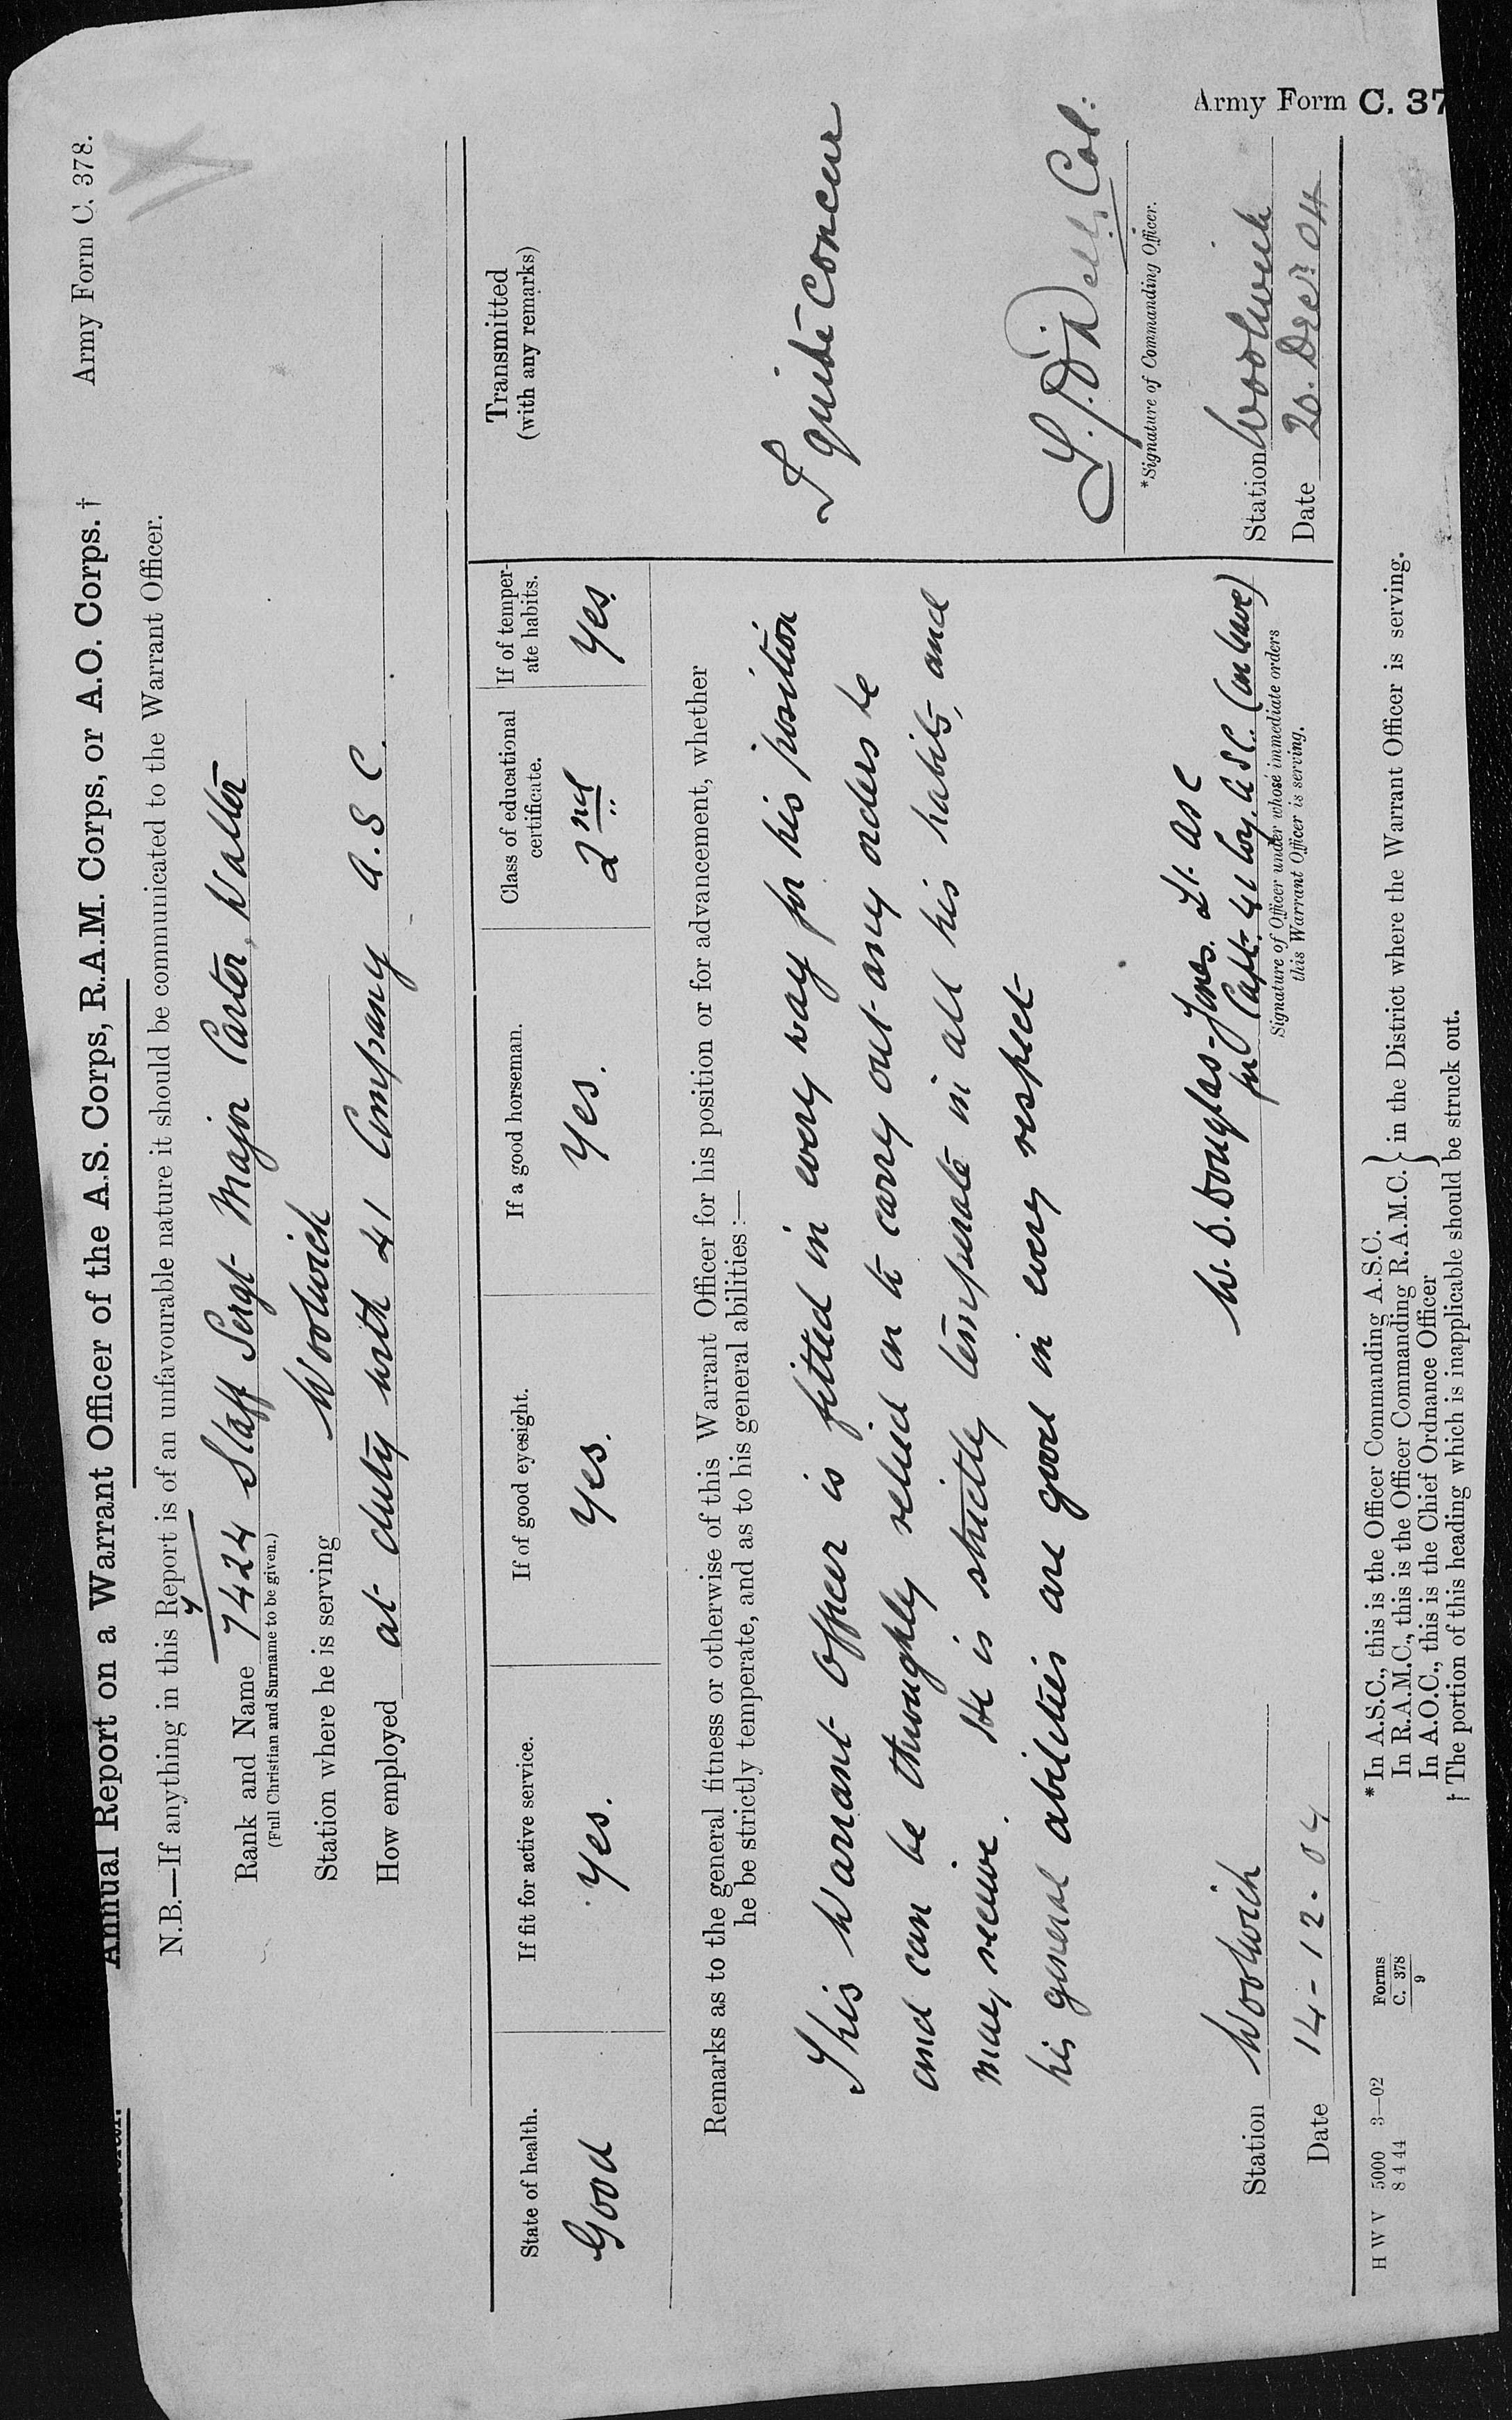 Army Form C. 378.
Annual Report on a Warrant Officer of the A.S. Corps, R.A.M. Corps, or A.O. Corps. †
N.B.—If anything in this Report is of an unfavourable nature it should be communicated to the Warrant Officer.
Rank and Name 7424 Staff Sergt Major Carter, Walter
(Full Christian and Surname to be given.)
Station where he is serving Woolwich
How employed at duty with 41 Company A.S.C.
State of health. If fit for active service. If of good eyesight. If a good horseman. Class of educational certificate. If of temperate habits.
Good Yes. Yes. Yes. 2nd Yes.
Remarks as to the general fitness or otherwise of this Warrant Officer for his position or for advancement, whether
he be strictly temperate, and as to his general abilities :—
This Warrant Officer is fitted in every way for his position
and can be thoroughly relied on to carry out any orders he
may receive. He is strictly temperate in all his habits, and
his general abilities are good in every respect
W. D. Douglas-Jones. Lt. ASC
for Capt. 41 Coy. A.S.C. (on leave)
Signature of Officer under whose immediate orders
this Warrant Officer is serving.
Station Woolwich
Date 14-12-04
Transmitted
(with any remarks)
I quite concur
Col:
*Signature of Commanding Officer.
Station Woolwich
Date 20. Decr. 04
* In A.S.C., this is the Officer Commanding A.S.C.
In R.A.M.C., this is the Officer Commanding R.A.M.C. } in the District where the Warrant Officer is serving.
In A.O.C., this is the Chief Ordnance Officer
† The portion of this heading which is inapplicable should be struck out.
H W V 5000 3—02
8 4 44
Forms
C. 378
9
Army Form C. 37